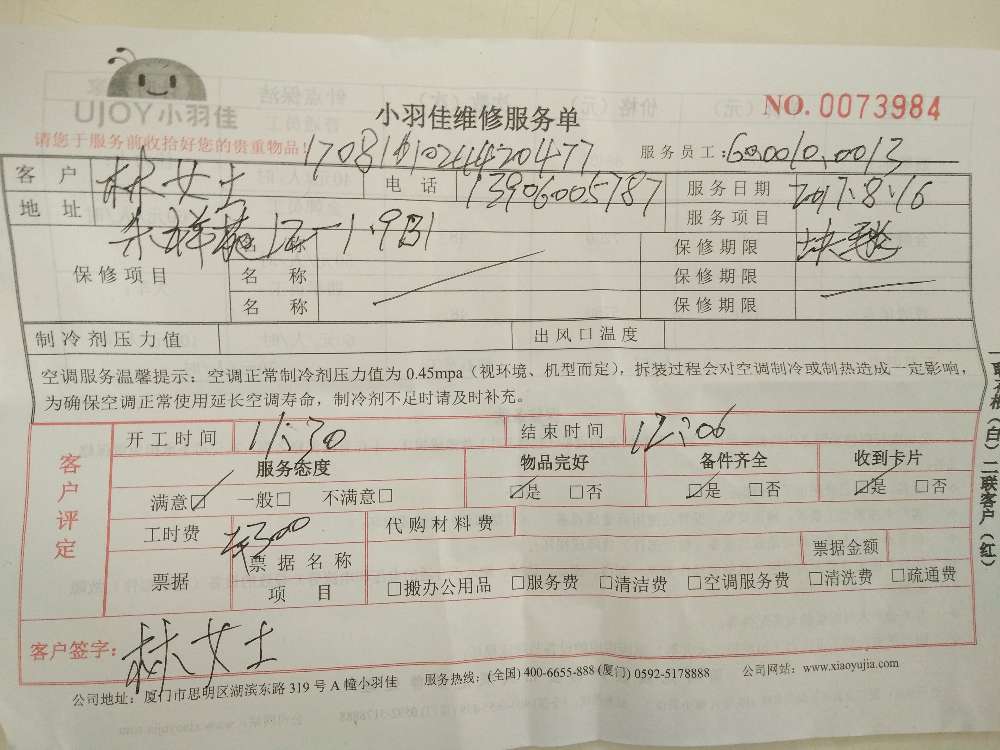 UJOY小羽佳
小羽佳维修服务单
NO. 0073984
请您于服务前收拾好您的贵重物品!
服务员工:
客户 林女士 电话 13906005787 服务日期 2017.8.16
地址 服务项目
保修项目 名称 保修期限
名称 保修期限
名称 保修期限
制冷剂压力值 出风口温度
空调服务温馨提示：空调正常制冷剂压力值为 0.45mpa（视环境、机型而定），拆装过程会对空调制冷或制热造成一定影响，
为确保空调正常使用延长空调寿命，制冷剂不足时请及时补充。
客户评定
开工时间 11:30 结束时间 12:06
服务态度 物品完好 备件齐全 收到卡片
满意☑ 一般□ 不满意□ ☑是 □否 ☑是 □否 ☑是 □否
工时费 300 代购材料费
票据 票据名称 票据金额
项目 □搬办公用品 □服务费 □清洁费 □空调服务费 □清洗费 □疏通费
客户签字： 林女士
公司地址：厦门市思明区湖滨东路 319 号 A 幢小羽佳 服务热线：(全国) 400-6655-888 (厦门) 0592-5178888 公司网站：www.xiaoyujia.com
(白) 二联客户 (红)